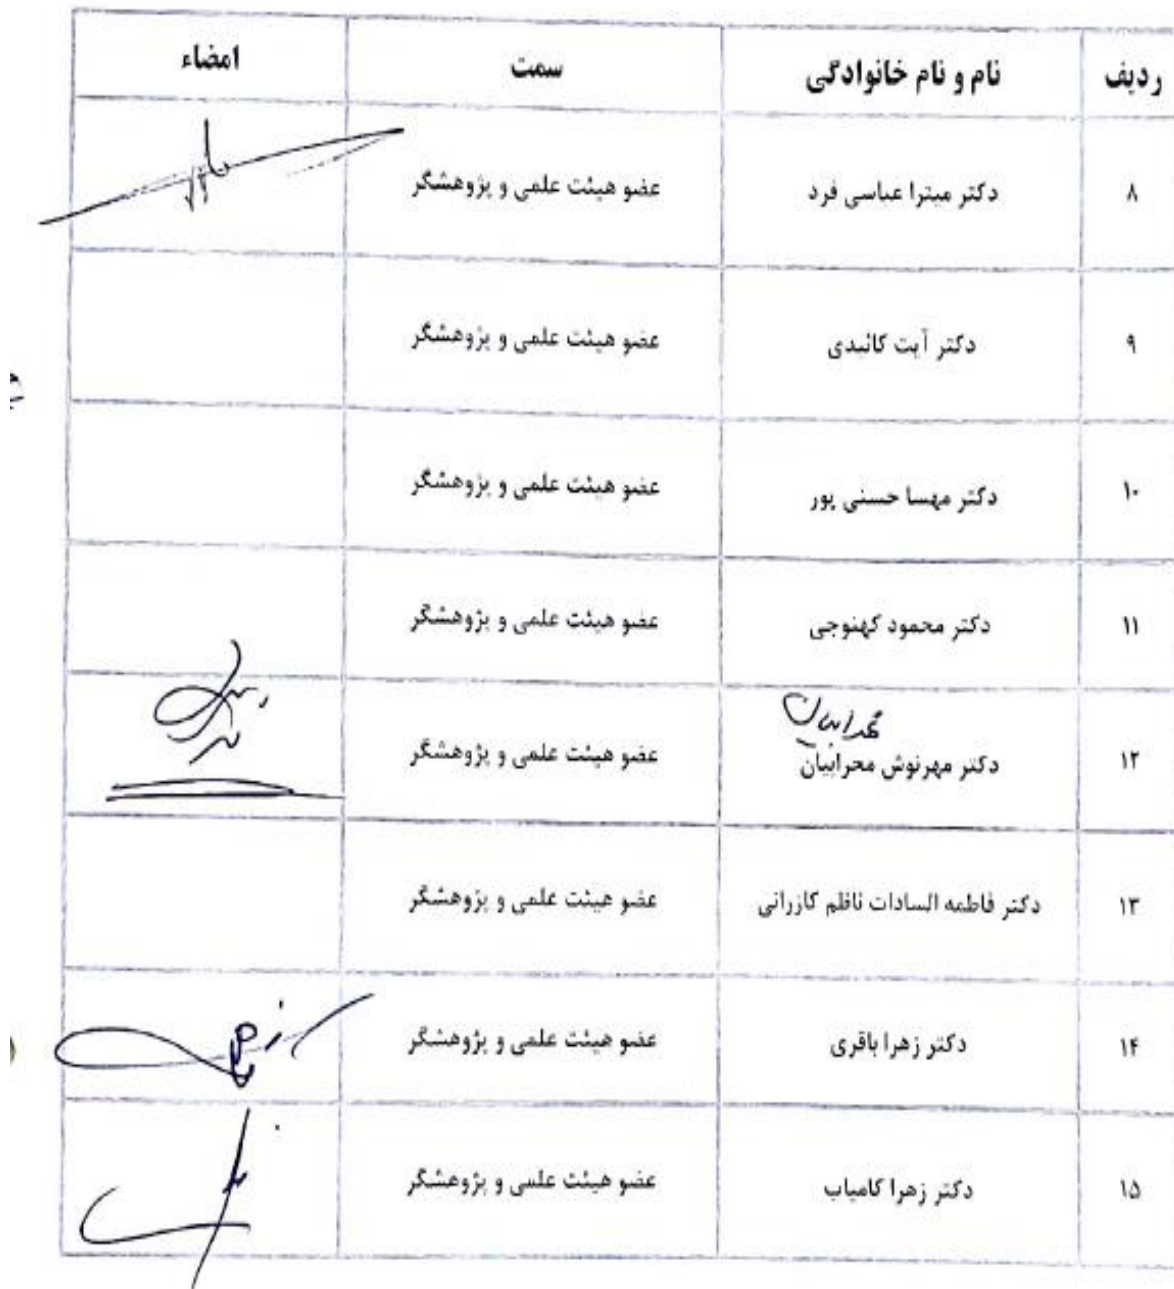 ردیف نام و نام خانوادگی سمت امضاء
۸ دکتر میترا عباسی فرد عضو هیئت علمی و پژوهشگر
۹ دکتر آیت کائیدی عضو هیئت علمی و پژوهشگر
۱۰ دکتر مهسا حسنی پور عضو هیئت علمی و پژوهشگر
۱۱ دکتر محمود کهنوجی عضو هیئت علمی و پژوهشگر
۱۲ دکتر مهرنوش محرابیان عضو هیئت علمی و پژوهشگر
۱۳ دکتر فاطمه السادات ناظم کازرانی عضو هیئت علمی و پژوهشگر
۱۴ دکتر زهرا باقری عضو هیئت علمی و پژوهشگر
۱۵ دکتر زهرا کامیاب عضو هیئت علمی و پژوهشگر